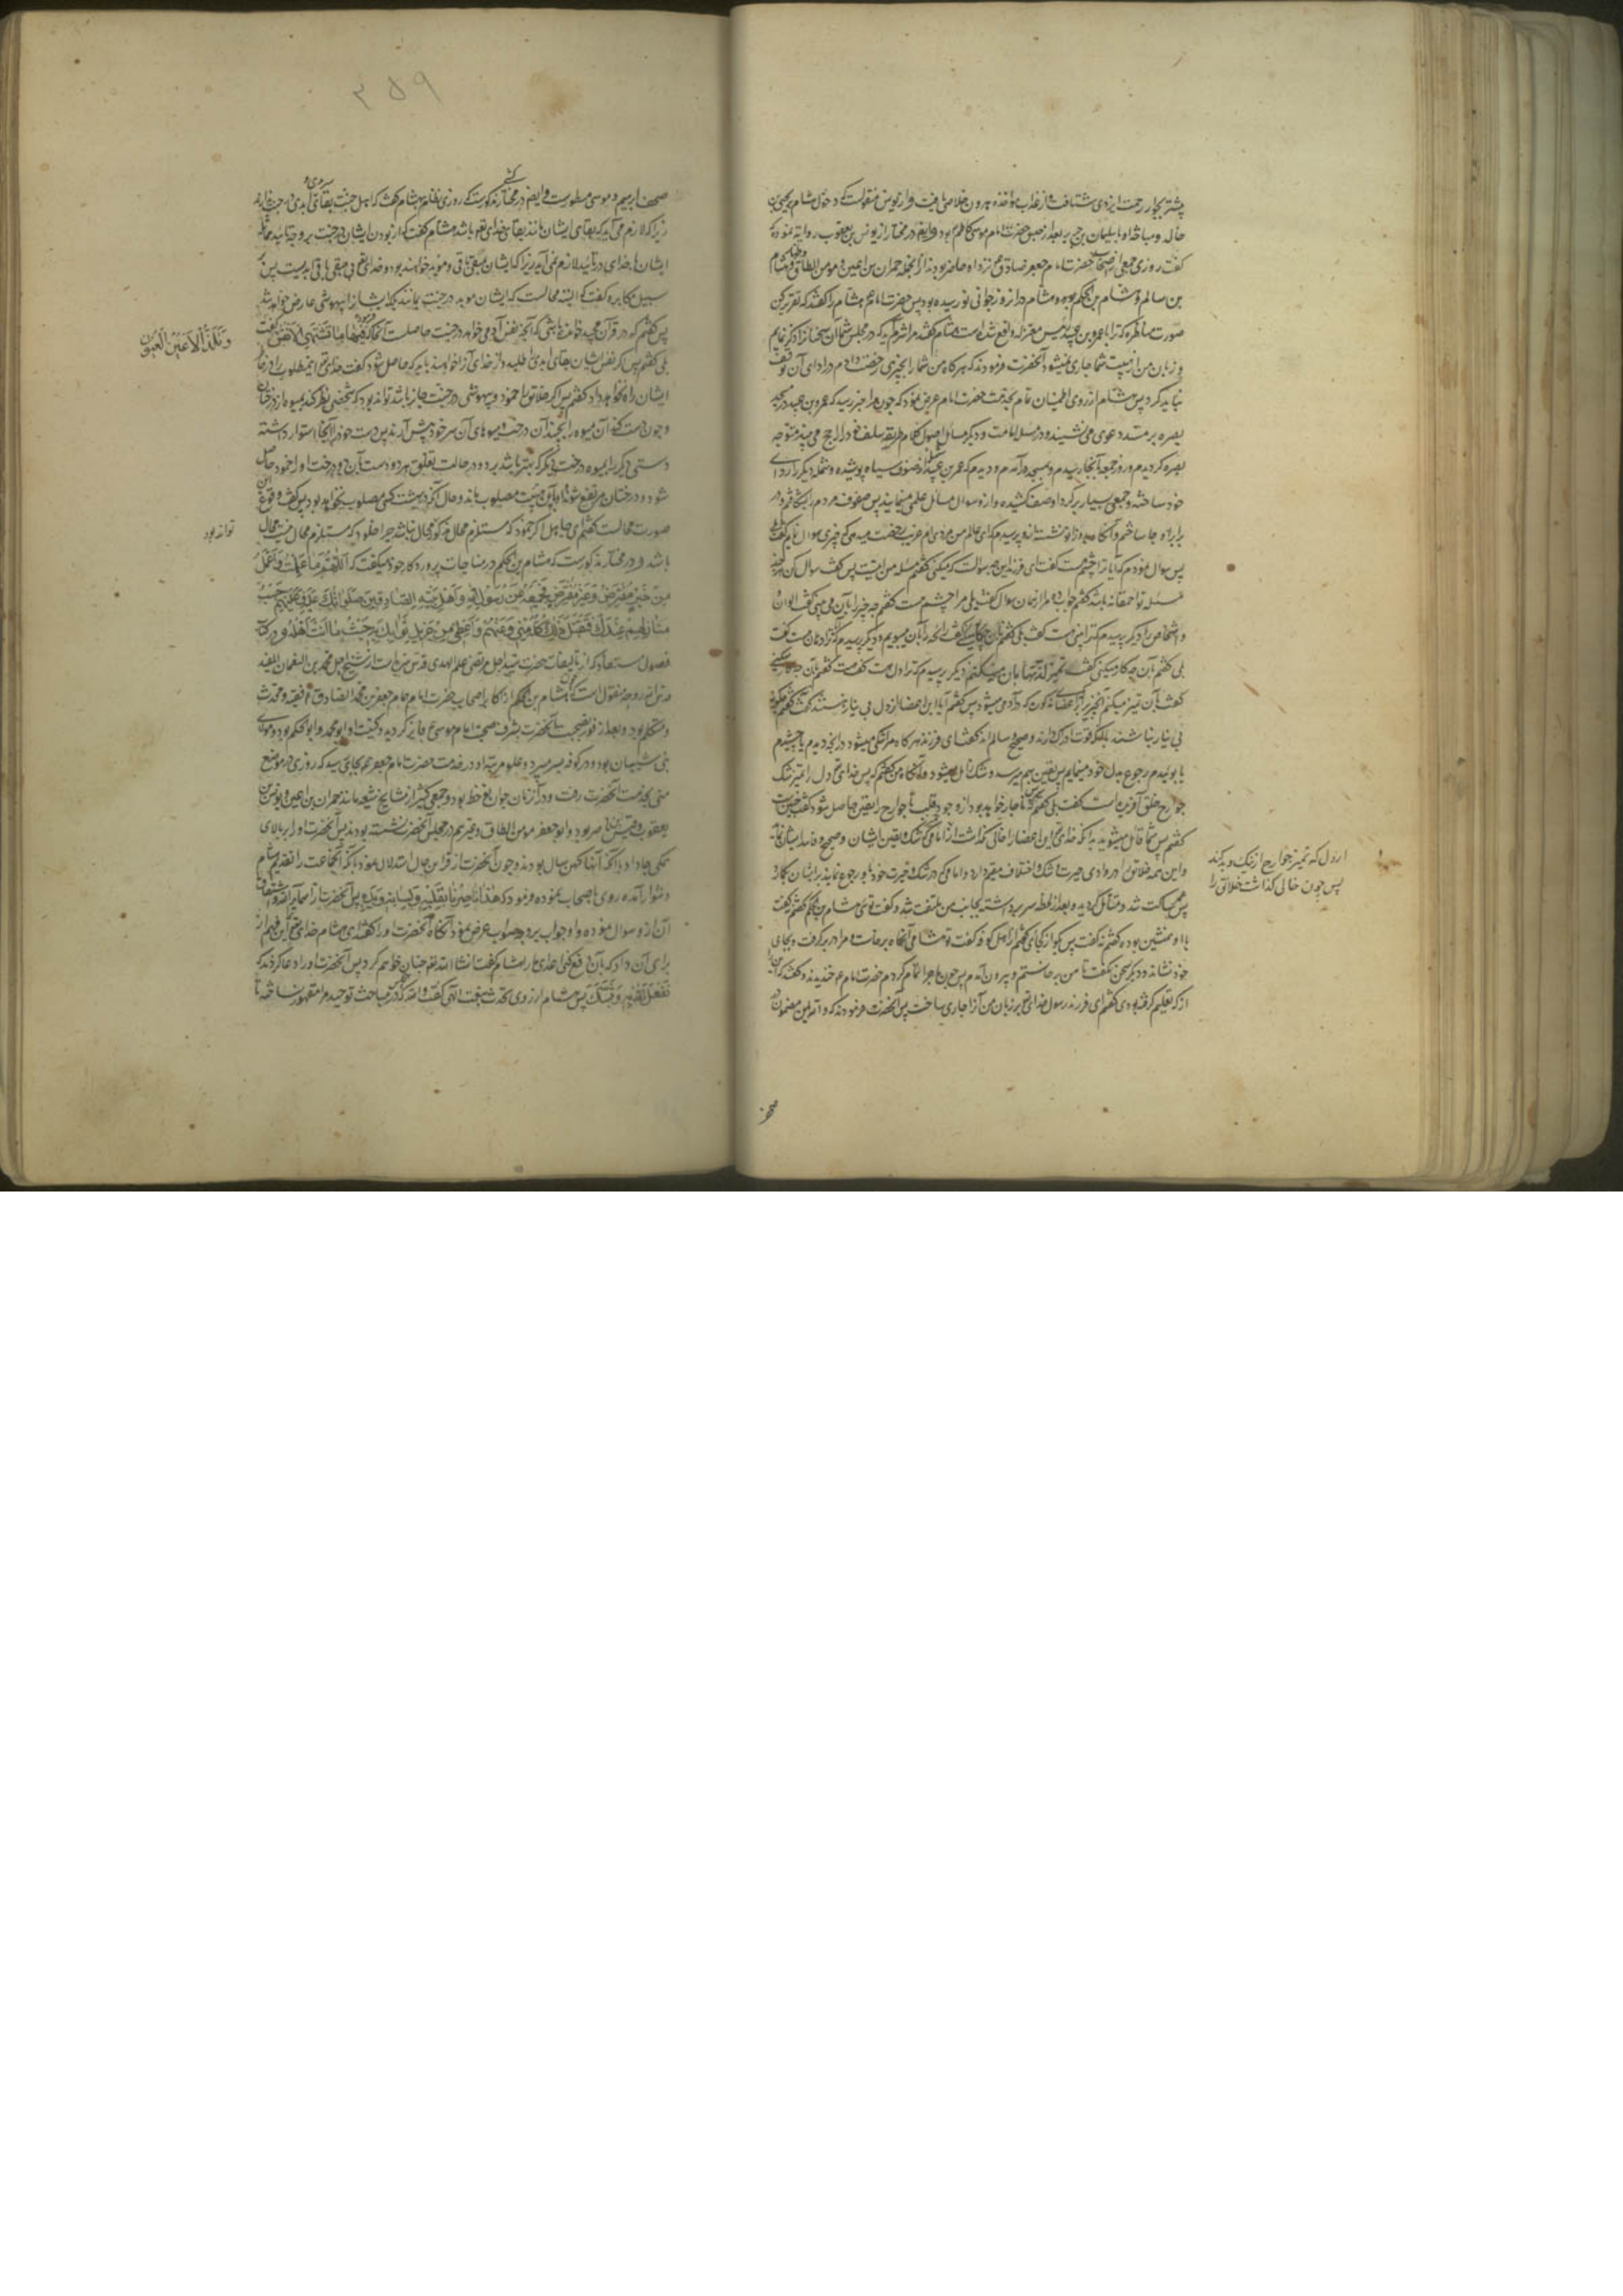 پیشتر بجوار رحمت ایزدی شتافت و از عذاب مؤاخذه هرون خلاصی یافت و از یونس منقولست که دخول هشام بر یحیی بن
خالد و مباحثه او با سلیمان بن جریر بعد از حبس حضرت امام موسی کاظم بود و ایضا در مختار از یونس بن یعقوب روایة نموده که
گفت روزی جمعی از اصحاب حضرت امام جعفر صادق ع نزد او حاضر بودند از آنجمله حمران بن اعین و مومن الطاق و هشام
بن سالم و هشام بن الحکم بوده و هشام در آن روز جوانی نو رسیده بود پس حضرت امام ع هشام را گفتند که تقریر کن
صورت مناظره که ترا با عمرو بن عبید رئیس معتزله واقع شده است هشام گفت مرا شرم می آید که در مجلس شما آن سخنانرا ذکر نمایم
و زبان من از هیبت شما جاری نمیشود آنحضرت فرمودند که هر گاه من شما را بچیزی رخصت دادم در ادای آن توقف
نباید کرد پس هشام از روی اطمینان تمام بخدمت حضرت امام عرض نمود که چون مرا خبر رسید که عمرو بن عبید در مسجد
بصره بر مسند دعوی می نشیند و در مسئله امامت و دیگر مسائل اصول کلام طریقه سلف خود را رایج می بیند متوجه
بصره گردیدم و روز جمعه بآنجا رسیدم و بمسجد درآمدم و دیدم که عمرو بن عبید از صوف سیاه پوشیده و شمله دیگر را ردای
خود ساخته و جمعی بسیار بر گرد او صف کشیده و ازو سوال مسائل علمی مینمایند پس صفوف مردم را شکافته در
برابر او جا ساختم و آنگاه بدو زانو نشستم و پرسیدم که ای عالم من مردی ام غریب رخصت میدهی که چیزی سوال نمایم گفت بلی
پس سوال نمودم که آیا ترا چشم هست گفت ای فرزند این چه سوالست که میکنی گفتم مسئله من اینست پس گفت سوال کن هر چند
مسئله تو احمقانه باشد گفتم جواب ده مرا از همان سوال گفت بلی مرا چشم هست گفتم چه چیز را بآن می بینی گفت الوان
و اشخاص را دیگر پرسیدم که ترا بینی هست گفت بلی گفتم بآن چکار میکنی گفت رائحه را بآن میبویم و دیگر پرسیدم که ترا دهان هست گفت
بلی گفتم بآن چه کار میکنی گفت تمیز لذتها بآن میکنم دیگر پرسیدم که ترا دل هست گفت هست گفتم بآن چکار میکنی
گفت بآن تمیز میکنم آنچیز را که بر اعضای مذکور وارد می شود پس گفتم آیا این اعضا از دل بی نیاز هستند گفت نه گفتم چگونه
بی نیاز نباشند بآنکه قوت ادراک دارند و صحیح و سالم اند گفت ای فرزند هر گاه مرا شکی میشود در آنچه دیدم یا چشیدم
یا بوئیدم رجوع بدل خود مینمایم پس یقین بهم میرسد و شک زایل میشود و آنگاه من گفتم که پس خدای تعالی دل را تمییز شک
جوارح خلق آفریده است گفت بلی گفتم پس ناچار خواهد بود از وجود قلب تا جوارح را یقین حاصل شود گفت چنین است
گفتم پس شما قائل میشوید بآنکه خدای تعالی این اعضا را خالی نگذاشت از امامی که شک و یقین ایشان و صحیح و فاسد ایشان نماید
و این همه خلائق را در وادی حیرت و شک و اختلاف مقیم دارد و امامی که در شک و حیرت خود باو رجوع نمایند برایشان نگمارد
پس ساکت شد و متأمل گردید و بعد از لحظه سر برداشته بجانب من ملتفت شد و گفت تویی هشام بن الحکم گفتم نه گفت
با او همنشین بوده گفتم نه گفت پس بگو از کجایی گفتم از اهل کوفه گفت تو هشامی آنگاه برخاست و مرا در بر گرفت و بجای
خود نشاند و دیگر سخن نگفت تا من برخاستم و بیرون آمدم پس چون ماجرا تمام کردم حضرت امام ع خندیدند و گفتند که این را
از که تعلیم گرفته بودی گفتم ای فرزند رسول خدای تعالی بر زبان من آنرا جاری ساخت پس آنحضرت فرمودند که والله این مضمون در
از دل که تمیز جوارح از نیک و بد کند
پس چون خالی گذاشت خلائق را
صحف
۳۵۹
صحف ابرهیم و موسی مسطورست و ایضا در مختار مذکورست که روزی نظام بهشام گفت که اهل جنت بقائی ابدی در جنت ندارند
زیرا که لازم می آید که بقای ایشان مانند بقای خدای تعالی باشد هشام گفت که از بودن ایشان در جنت بر وجه تأیید مماثله
ایشان با خدای در تأیید لازم نمی آید زیرا که ایشان بمبقی باقی و موید خواهند بود و خدای تعالی بی مبقی باقی ابدیست پس بر
سبیل مکابره گفت که البته محالست که ایشان موید در جنت بمانند بلکه ایشانرا بیهوشی عارض خواهد شد
پس گفتم که در قرآن مجید خوانده باشی که آنچه نفس آدمی خواهد در جنت حاصلست آنجا که فرموده فیها ما تشتهی الانفس گفت
بلی گفتم پس اگر نفس ایشان بقای ابدی طلبد و از خدای آنرا خواهند باید که حاصل شود گفت خدای تعالی این مطلوب را در خاطر
ایشان راه نخواهد داد گفتم پس اگر خلائق را خمود و بیهوشی در جنت جایز باشد تواند بود که شخصی نظر کند بمیوه از درختان
و چون دست کند آن میوه را بچیند آن درخت میوهای آن سر خود پیش آرند پس دست خود را آنجا استوار داشته
دستی دیگر را بمیوه درخت دیگر که بهتر باشد برد و در حالت تعلق هر دو دست بآن دو درخت او را خمود حاصل
شود و درختان مرتفع شوند او بآن هیئت مصلوب ماند و حال آنکه در بهشت کسی مصلوب نخواهد بود پس گفت وقوع این
صورت محالست گفتم ای جاهل اگر خمود که مستلزم محال مذکور محال نباشد چرا خلود که مستلزم محال نیست محال
باشد و در مختار مذکورست که هشام بن الحکم در مناجات پروردگار خود میگفت که اللهم ما عملت و اعمل
من خیر مفترض و غیر مفترض فجمیعه عن رسول الله و اهل بیته الصادقین صلواتک علیه و علیهم حسب
منازلهم عندک فتقبل ذلک کله منی و عنهم و اعطنی من جزیل ثوابک بحیث ما انت اهله و در کتاب
فصول مستعاد که از تالیفات حضرت سید اجل مرتضی علم الهدی قدس سره است از شیخ اجل محمد بن النعمان المفید
قدس الله روحه منقول است که هشام بن الحکم از اکابر اصحاب حضرت امام همام جعفر بن محمد الصادق ع و فقیه و محدث
و متکلم بود و بعد از فوز صحبت آنحضرت بشرف صحبت امام موسی ع فایز گردید و کنیت او ابو محمد و ابو الحکم بود و مولای
بنی شیبان بود و در کوفه بسر میبرد و علو مرتبه او در خدمت حضرت امام جعفر ع بجایی رسید که روزی در موضع
منی بخدمت آنحضرت رفت و در آن زمان جوان نوخط بود و جمعی کثیر از مشایخ شیعه مانند حمران بن اعین و یونس بن
یعقوب و قیس ماصر بود و ابو جعفر مومن الطاق و غیرهم در مجلس آنحضرت نشسته بودند پس آنحضرت او را بر بالای
همگی جا داد با آنکه آنها کهن سال بودند و چون آنحضرت از قراین حال استدلال نمود بآنکه آنجماعت را تقدیم هشام
دشوار آمده روی باصحاب نموده فرمود که هذا ناصرنا بقلبه و لسانه و یده پس آنحضرت را از اسمای الله و اشتقاق
آن ازو سوال نموده و او جواب بر وجه صواب عرض نمود آنگاه آنحضرت او را گفت ای هشام خدای تعالی این فهم از
برای آن داد که بآن دفع کنی اعدای ما را هشام گفت انشا الله تعالی چنان خواهم کرد پس آنحضرت او را دعا کردند که
نفعک الله به و ثبتک پس هشام از روی تحدث بنعمت الهی گفت والله که در مباحث توحید مرا مقهور نساخته تا
و تلذ الاعین العیون
تواند بود